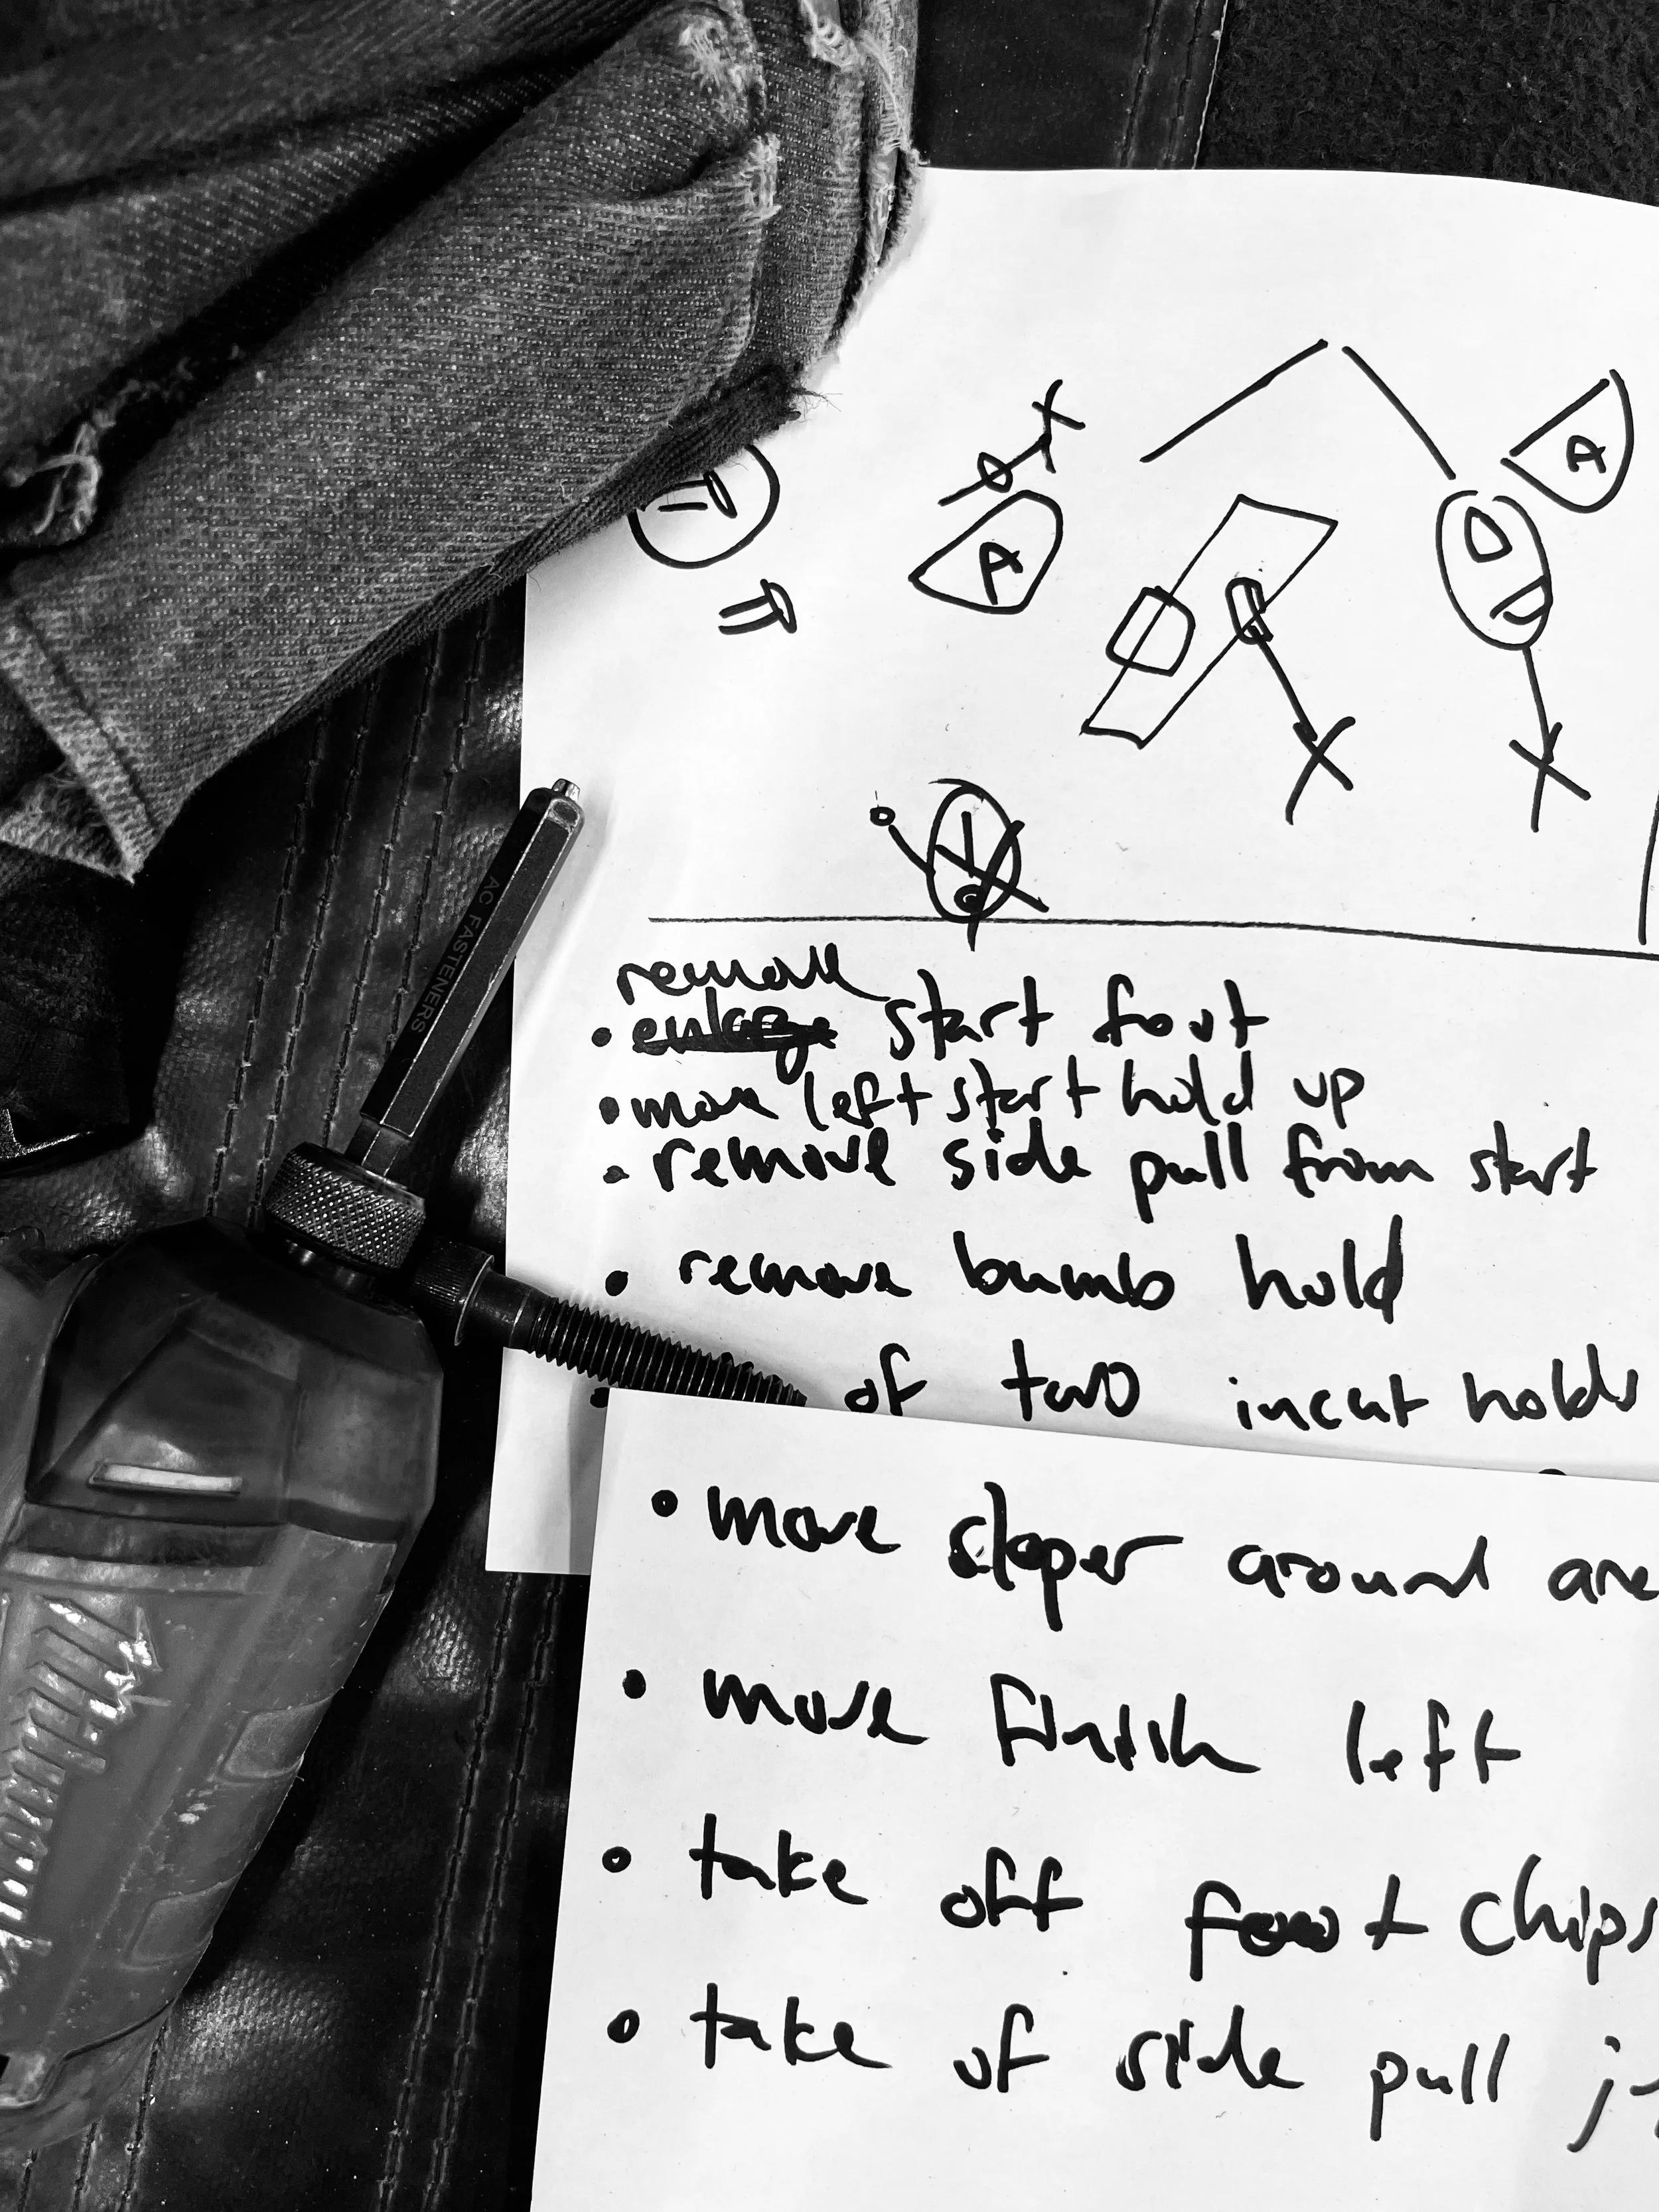 A
A
AC FASTENERS
remove
• enlarge start foot
• move left start hold up
• remove side pull from start
• remove bumb hold
• of two incut holds
• move sloper around are
• move finish left
• take off foot chips
• take of side pull j
Milwaukee